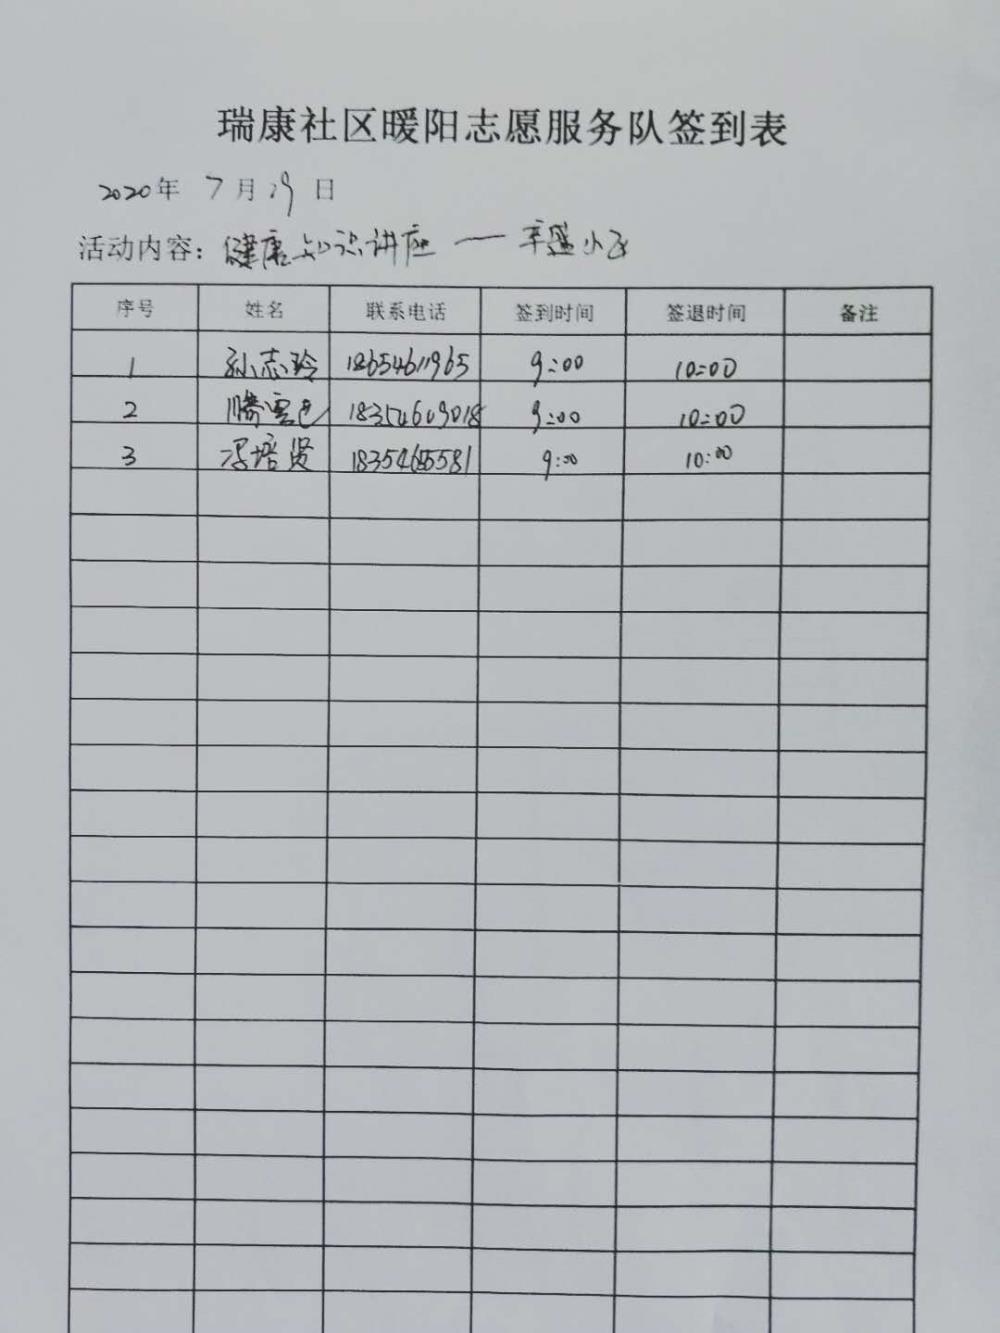 瑞康社区暖阳志愿服务队签到表
2020年 7月19日
活动内容：健康知识讲座 — 丰盛小区
序号 姓名 联系电话 签到时间 签退时间 备注
1 孙志玲 18654611965 9:00 10:00
2 9:00 10:00
3 冯培贤 9:00 10:00